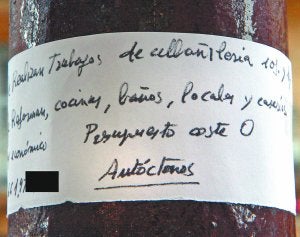 Realizan Trabajos de albañileria
Reforman, cocinas, baños, locales y
económico Presupuesto coste 0
Autóctonos